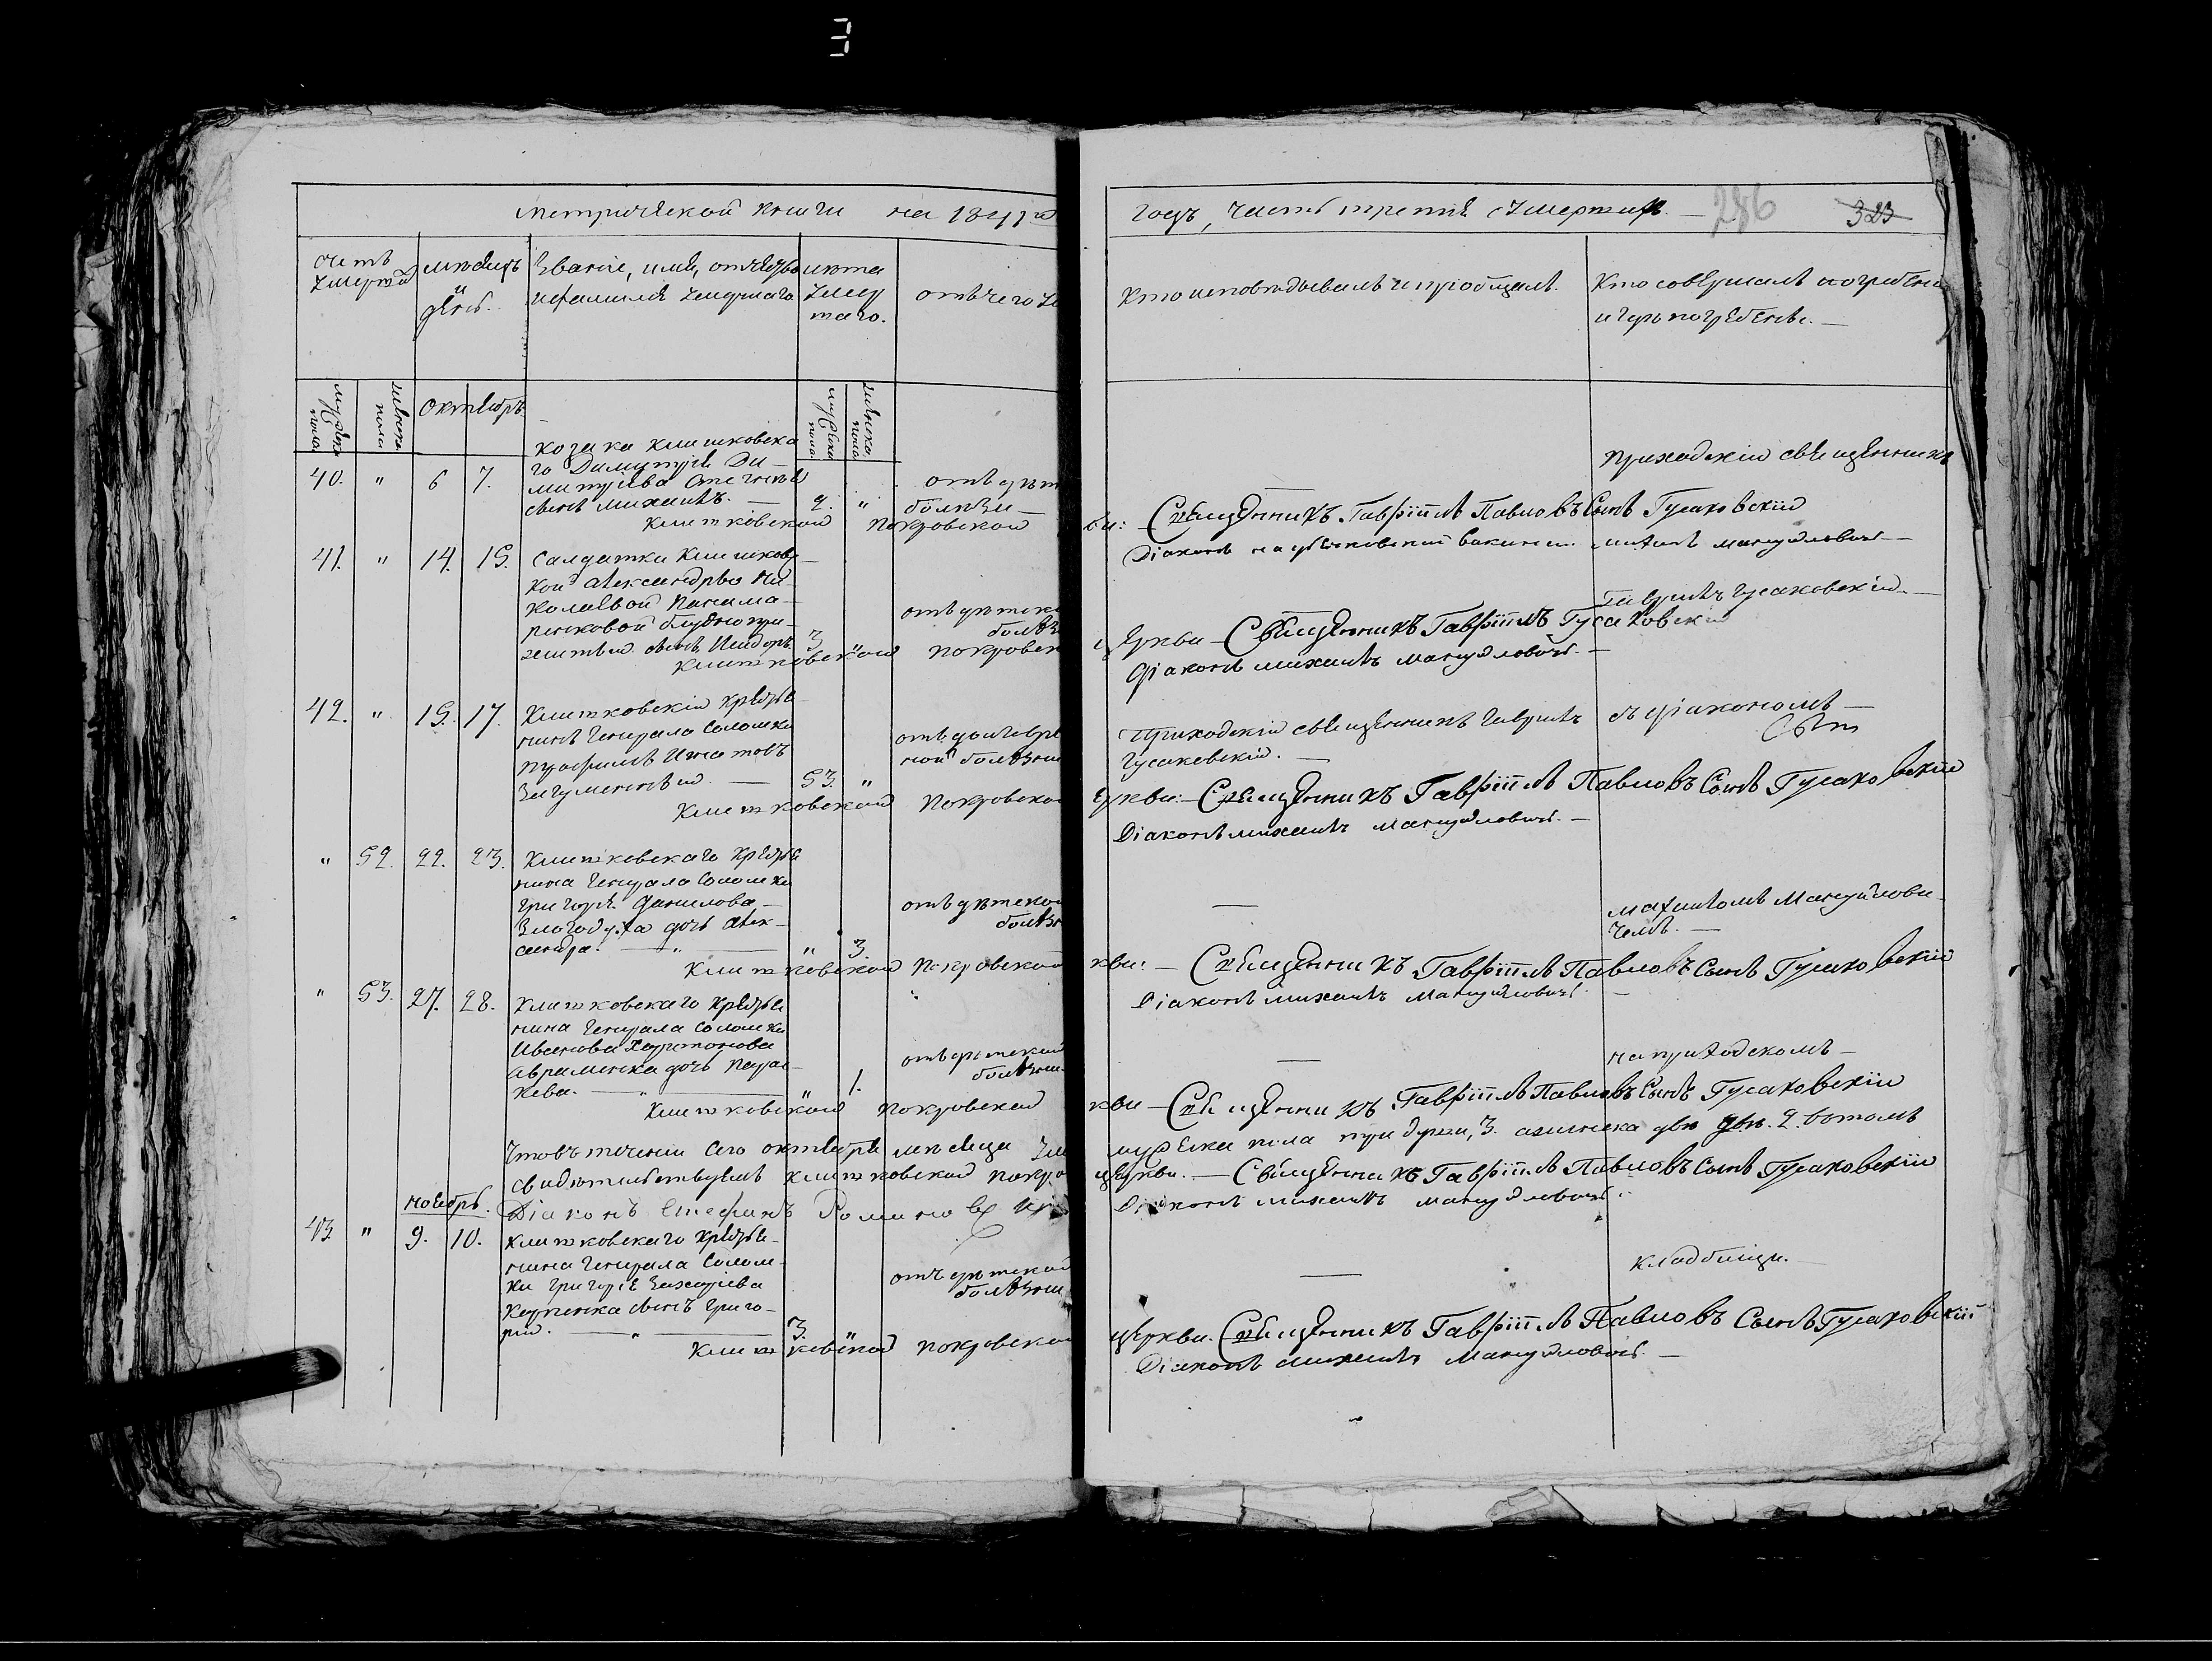 метрической книги на 1841го
годъ, часть третія умершихъ. — 286 323
счетъ умерш
мѣсяцъ и день.
Званіе, имя, отчество
и фамилія умершаго
лѣта умер таго.
отъ чего у
Кто исповѣдывалъ и пріобщалъ.
Кто совершалъ погребеніе
и гдѣ погребены. —
мужеска пола
женска пола
Октябрь
мужеска пола
женска пола
козака Клишковска
го Димитрія Ди-
40. " 6 7. митріева
сынъ Михаилъ. — 2. "
отъ дѣт
болѣзни —
приходскій священникъ
Клишковской Покровской
ви: — Священникъ Гавріилъ Павловъ Сынъ Гусаковскій
Діаконъ Михаилъ Мануйловичъ —
41. " 14. 15. Салдатки Клишковс
кой Александры Ни-
колаевой
блудно при-
житый сынъ 3 "
отъ дѣтско
болѣз
Гавріилъ Гусаковскій. —
Клишковской Покровск
церкви — Священникъ Гавріилъ Гусаковскій
Діаконъ Михаилъ Мануйловичъ. —
42. " 15. 17. Клишковскій крестья
нинъ Генерала Соломки
Игнатовъ
— 53. "
отъ
ной болѣзни
Приходскій священникъ Гавріилъ
Гусаковскій. —
съ діакономъ —
Клишковской Покровской
церкви: — Священникъ Гавріилъ Павловъ Сынъ Гусаковскій
Діаконъ Михаилъ Мануйловичъ. —
" 52. 22. 23. Клишковскаго крестья
нина Генерала Соломки
Григорія Данилова
дочь Алек-
сандра. — " — " 3.
отъ дѣтской
болѣз
—
Мануйлови
чемъ. —
Клишковской Покровской
кви: — Священникъ Гавріилъ Павловъ Сынъ Гусаковскій
Діаконъ Михаилъ Мануйловичъ. —
" 53. 27. 28. Клишковскаго крестья
нина Генерала Соломки
Ивана Харитонова
Авраменка дочь Парас-
кева. — " — " 1.
отъ дѣтской
болѣзни.
—
на приходскомъ —
Клишковской Покровской
кви — Священникъ Гавріилъ Павловъ Сынъ Гусаковскій
Что въ теченіи сего октября мѣсяца
мужеска пола три души, 3. а женска двѣ 2. въ томъ
свидѣтельствуемъ Клишковской Покро
церкви. — Священникъ Гавріилъ Павловъ Сынъ Гусаковскій
Ноябрь.
Діаконъ Стефанъ
Діаконъ Михаилъ Мануйловичъ.
43. " 9. 10. Клишковскаго крестья-
нина Генерала Солом-
ки Григорія Захаріева
сынъ Григо-
рій. — " — 3. "
отъ дѣтской
болѣзни
—
кладбищи. —
Клишковской Покровской
церкви. Священникъ Гавріилъ Павловъ Сынъ Гусаковскій
Діаконъ Михаилъ Мануйловичъ. —